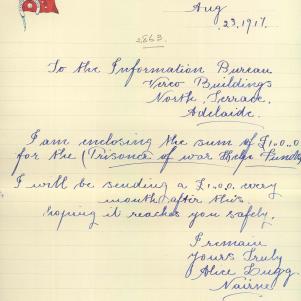 Aug
23. 1917.
2863.
To the Information Bureau
Verco Buildings
North Terrace.
Adelaide.
I am enclosing the sum of £1.0.0
for the (Prisoners of war Help Fund)
I will be sending a £1.0.0. every
month after this.
hoping it reaches you safely.
I remain
Yours Truly
Alice Lugg
Nairne